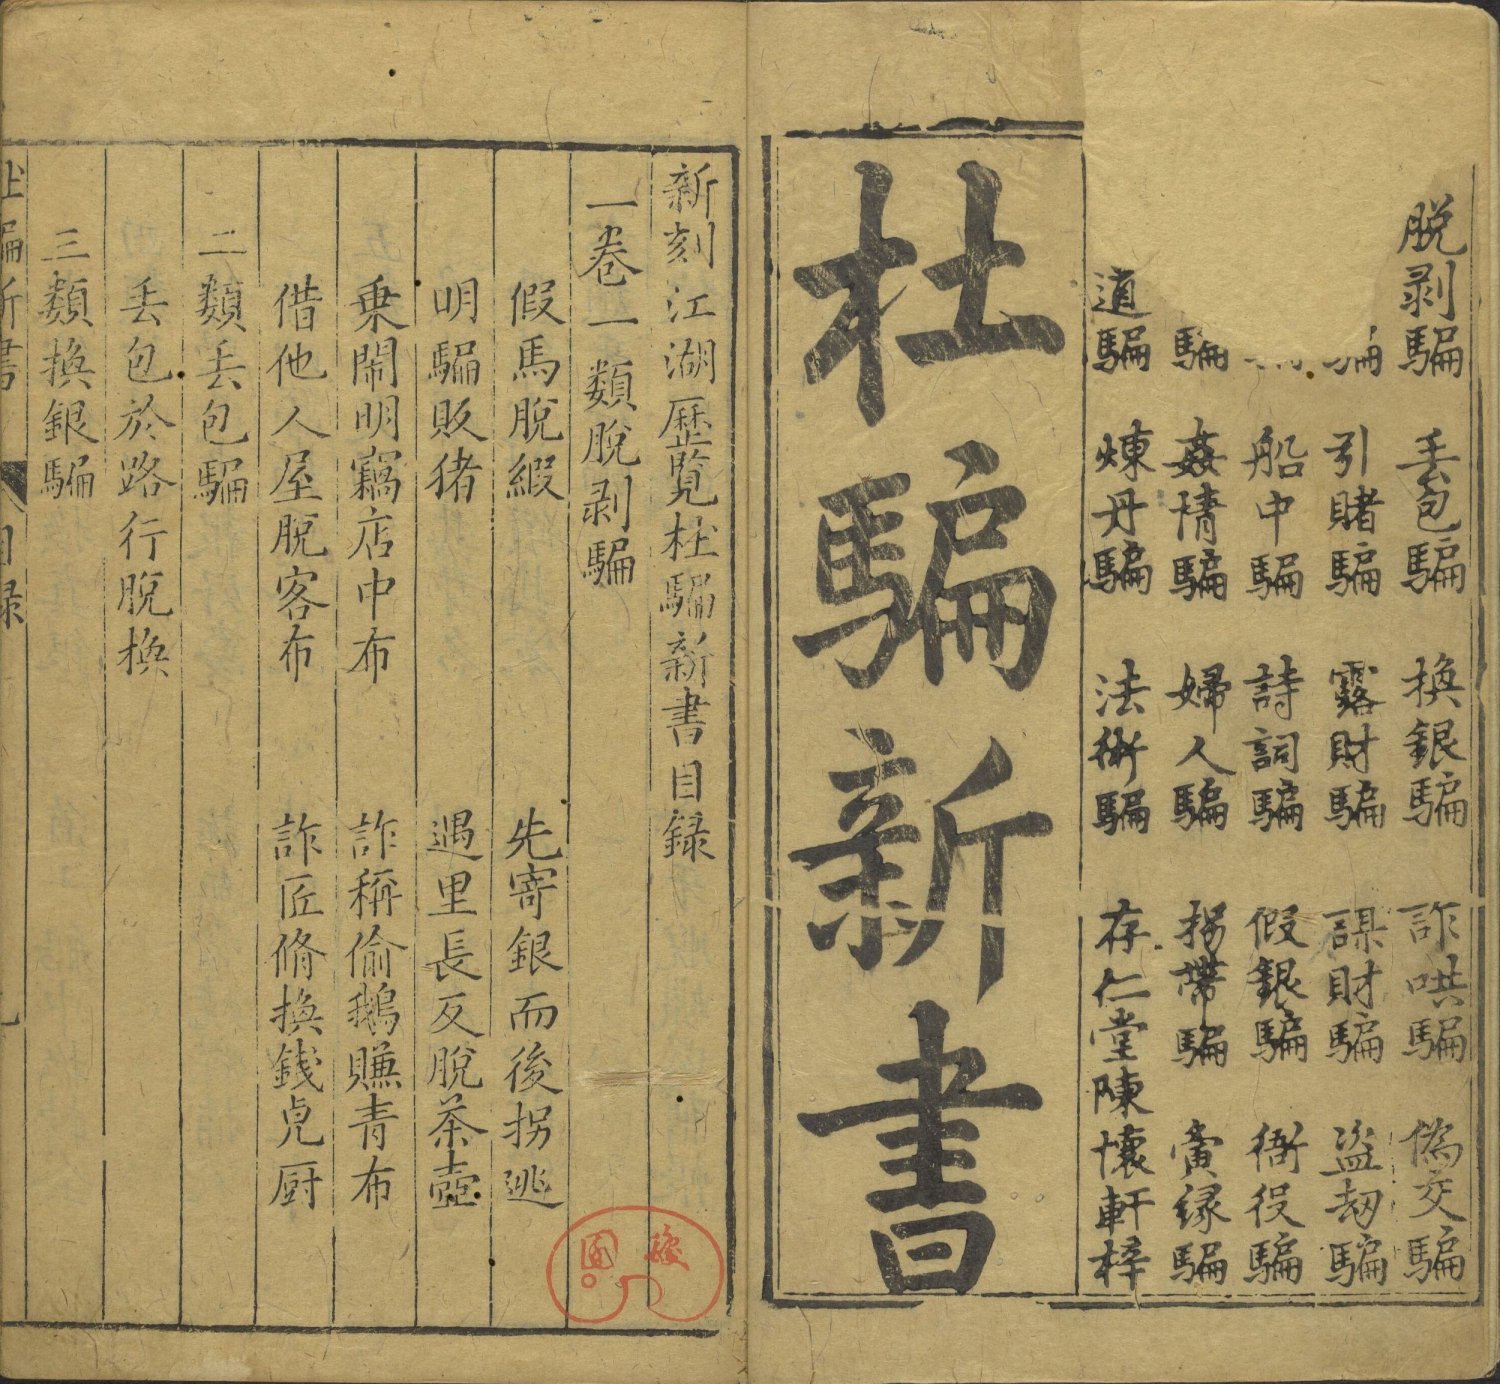 脫剥騙 丢包騙 換銀騙 詐哄騙 偽交騙
騙 引賭騙 露財騙 謀財騙 盜刼騙
船中騙 詩詞騙 假銀騙 衙役騙
騙 姦情騙 婦人騙 拐帶騙 夤緣騙
道騙 煉丹騙 法術騙 存仁堂陳懷軒梓
杜騙新書
新刻江湖歷覽杜騙新書目録
一卷一類脫剥騙
假馬脫緞 先寄銀而後拐逃
明騙販猪 遇里長反脫茶壺
乗閙明竊店中布 詐稱偷鵝賺青布
借他人屋脫客布 詐匠脩換錢皃厨
二類丢包騙
丢包於路行脫換
三類換銀騙
杜騙新書 目録